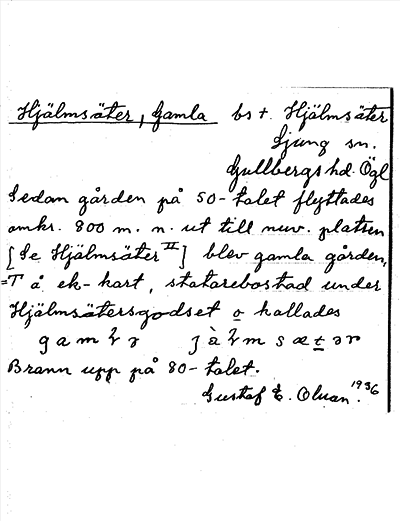 Hjälmsäter, Gamla bs t. Hjälmsäter
Ljung sn.
Gullbergs hd. Ögl
Sedan gården på 50-talet flyttades
omkr. 800 m. n. ut till nuv. platsen
[Se Hjälmsäter II] blev gamla gården,
=T å ek-kart, statarebostad under
Hjälmsätersgodset o kallades
Brann upp på 80-talet.
Gustaf E. Olsson. 1936